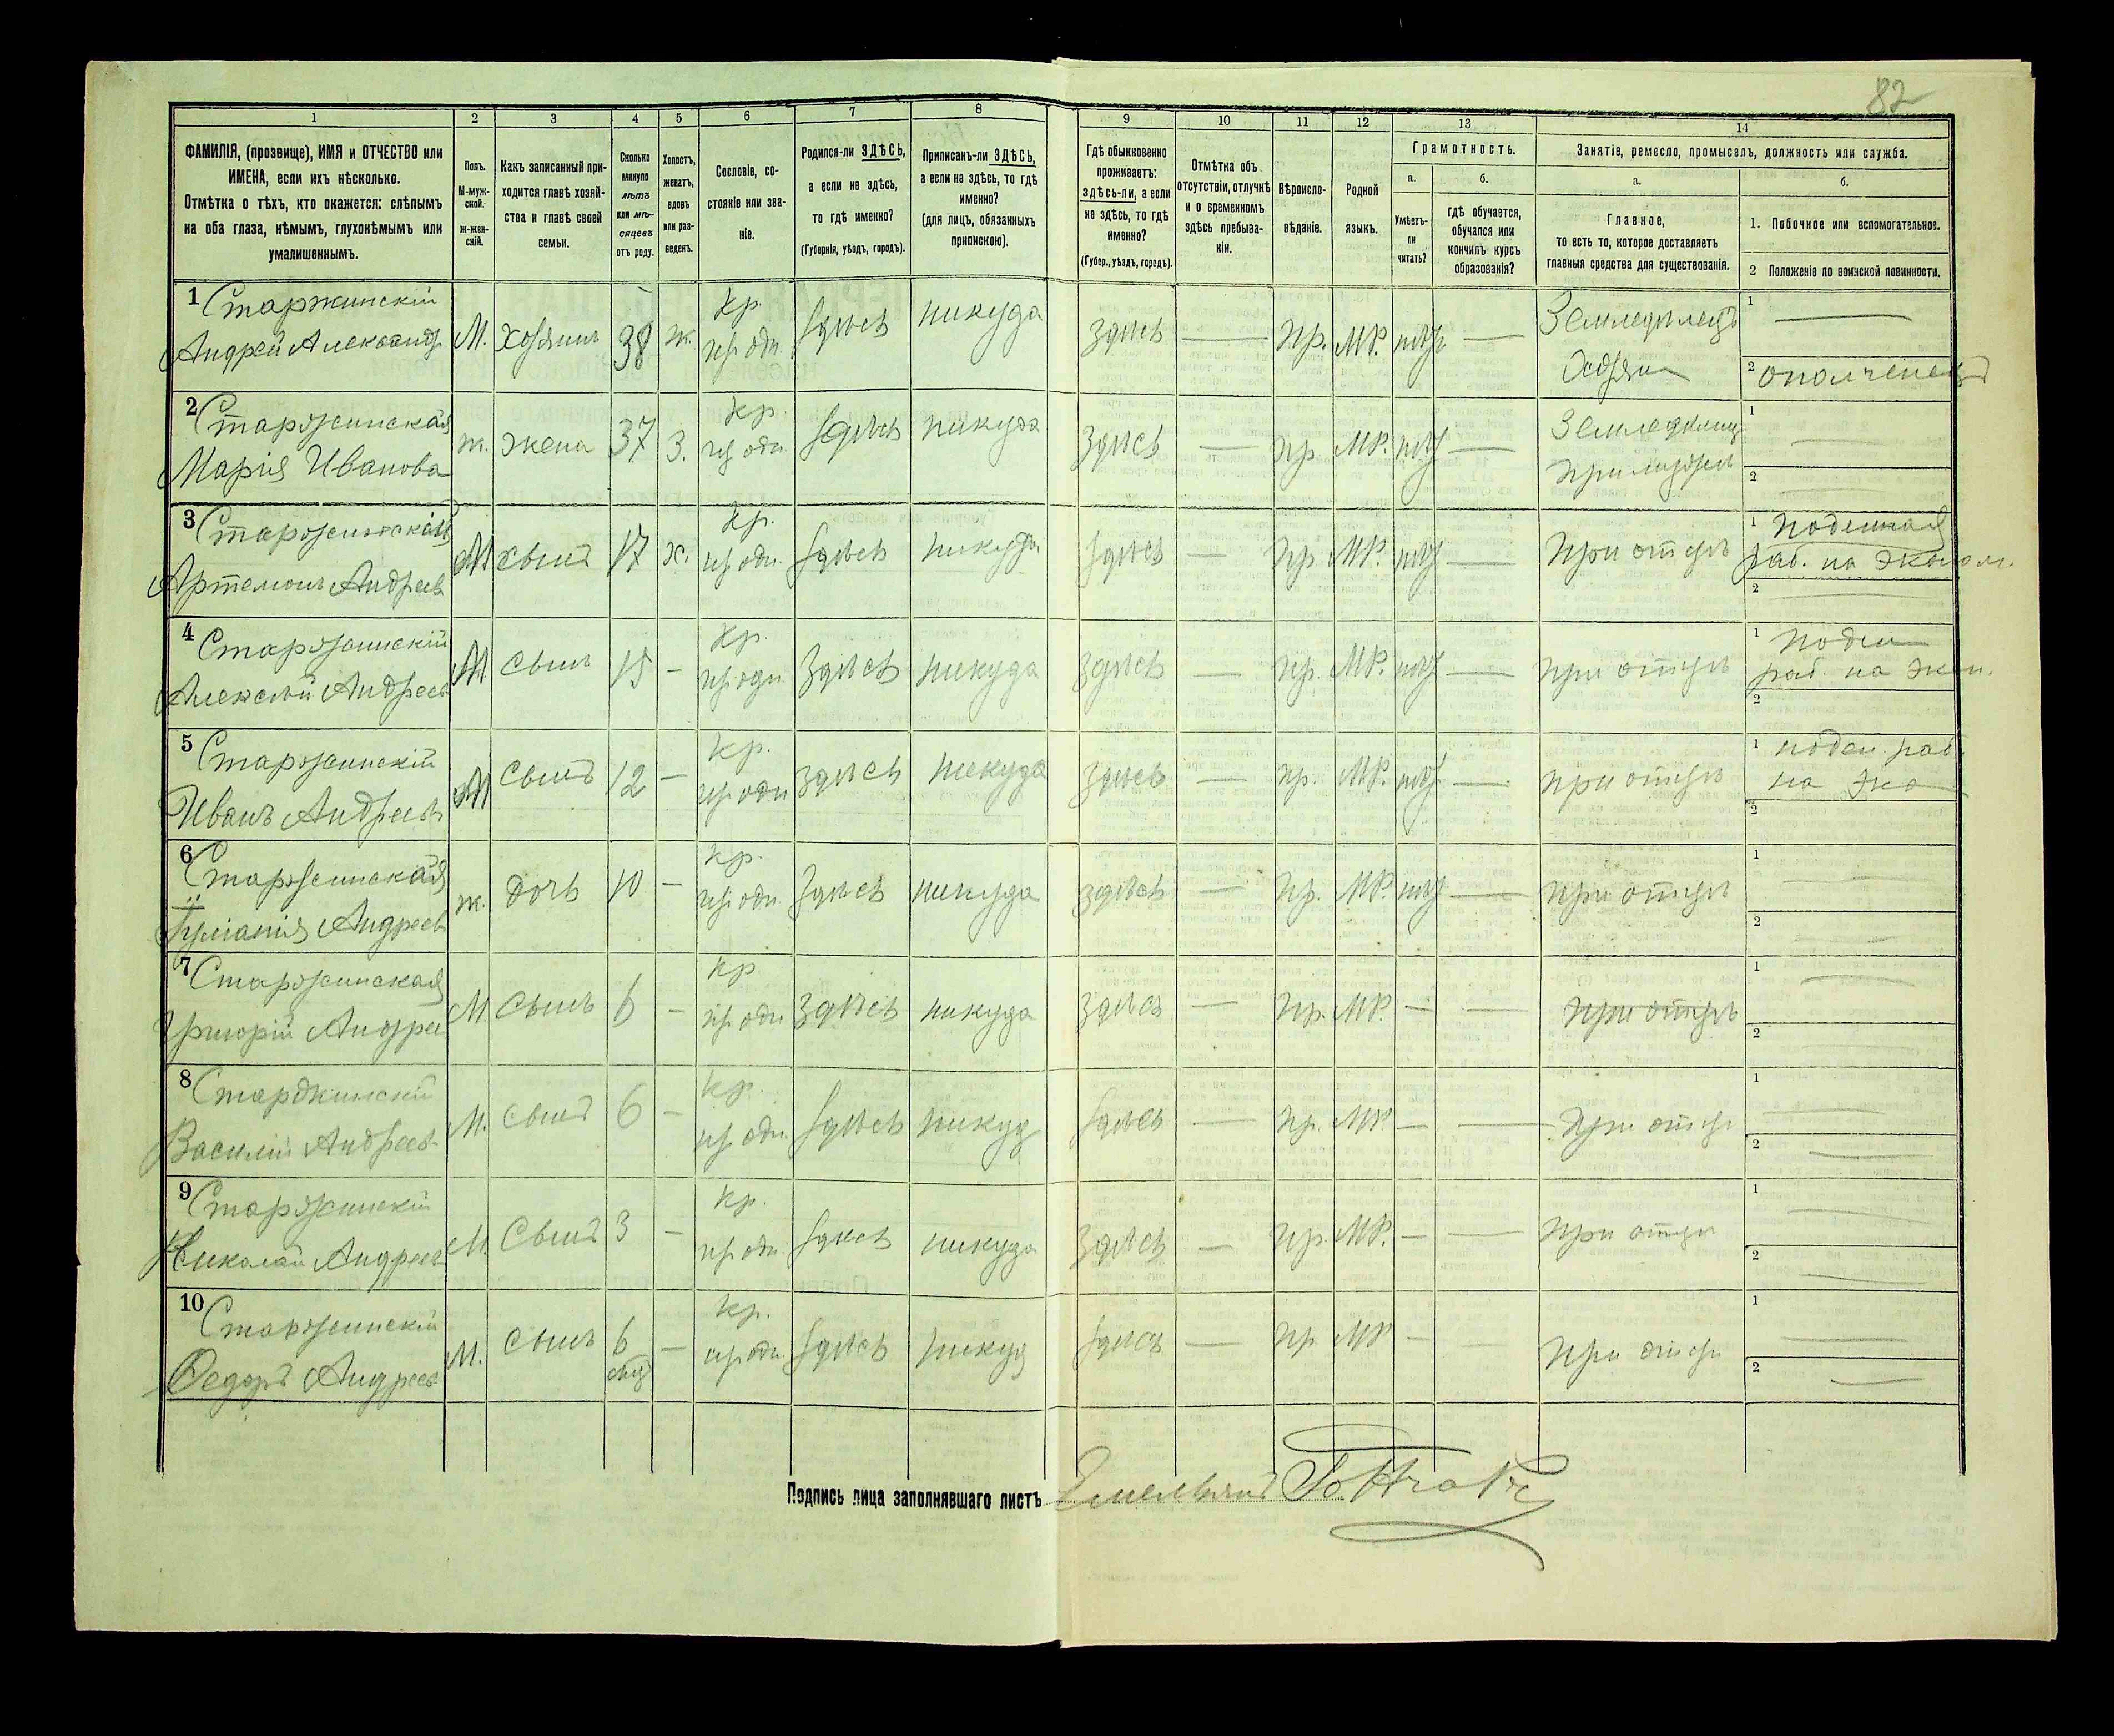 82
1
2
3
4
5
6
7
8
9
10
11
12
13
14
ФАМИЛІЯ, (прозвище), ИМЯ и ОТЧЕСТВО или
ИМЕНА, если ихъ нѣсколько.
Отмѣтка о тѣхъ, кто окажется: слѣпымъ
на оба глаза, нѣмымъ, глухонѣмымъ или
умалишеннымъ.
Полъ.
М-муж-
ской.
Ж-жен-
скій.
Какъ записанный при-
ходится главѣ хозяй-
ства и главѣ своей
семьи.
Сколько
минуло
лѣтъ
или мѣ-
сяцевъ
отъ роду.
Холостъ,
женатъ,
вдовъ
или раз-
веденъ.
Сословіе, со-
стояніе или зва-
ніе.
Родился-ли ЗДѢСЬ,
а если не здѣсь,
то гдѣ именно?
(Губернія, уѣздъ, городъ).
Приписанъ-ли ЗДѢСЬ,
а если не здѣсь, то гдѣ
именно?
(для лицъ, обязанныхъ
припискою).
Гдѣ обыкновенно
проживаетъ:
здѣсь-ли, а если
не здѣсь, то гдѣ
именно?
(Губер., уѣздъ, городъ).
Отмѣтка объ
отсутствіи, отлучкѣ
и о временномъ
здѣсь пребыва-
ніи.
Вѣроиспо-
вѣданіе.
Родной
языкъ.
Грамотность.
а.
Умѣетъ-
ли
читать?
б.
гдѣ обучается,
обучался или
кончилъ курсъ
образованія?
Занятіе, ремесло, промыселъ, должность или служба.
а.
Главное,
то есть то, которое доставляетъ
главныя средства для существованія.
б.
1. Побочное или вспомогательное.
2 Положеніе по воинской повинности.
1 Старжинскій
Андрей Александр М. Хозяинъ 38 ж. Кр. здѣсь никуда здѣсь — пр. МР. — Земледѣлецъ
Хозяин
1 —
2 ополченецъ
2 Старжинская
Марія Иванова ж. жена 37 З. Кр. здѣсь никуда здѣсь — пр МР. — Земледѣлец
1 —
2 —
3
Артемонъ Андреев М сынъ 17 х. Кр. здѣсь никуда здѣсь — пр МР. — При отцѣ
1 Поденная
раб. на эконом.
2 —
4 Старжинскій
Алексѣй Андреев М сынъ 15 — Кр. здѣсь никуда здѣсь — пр. МР. — при отцѣ
1 Поден
раб. на экон.
2
5 Старжинскій
Иванъ Андреевъ М сынъ 12 — Кр. здѣсь никуда здѣсь — пр. МР. — при отцѣ
1 поден. раб.
на эко
2
6 Старжинская
Андреев ж. дочь 10 — Кр. здѣсь никуда здѣсь — пр. МР. — при отцѣ
1 —
2 —
7 Старжинская
Григорій Андрее М. сынъ 6 — Кр здѣсь никуда здѣсь — пр. МР. — — при отцѣ
1 —
2 —
8 Старжинскій
Василій Андреев М. сынъ 6 — Кр. здѣсь никуд здѣсь — пр. МР — — При отцѣ
1 —
2 —
9 Старжинскій
Николай Андреев М. сынъ 3 — Кр. здѣсь никуда здѣсь — пр. МР. — — при отцѣ
1 —
2 —
10 Старжинскій
Федоръ Андреев М. сынъ 6 — Кр. здѣсь никуд здѣсь — пр МР — — При отцѣ
1 —
2 —
Подпись лица заполнявшаго листъ Емельянъ